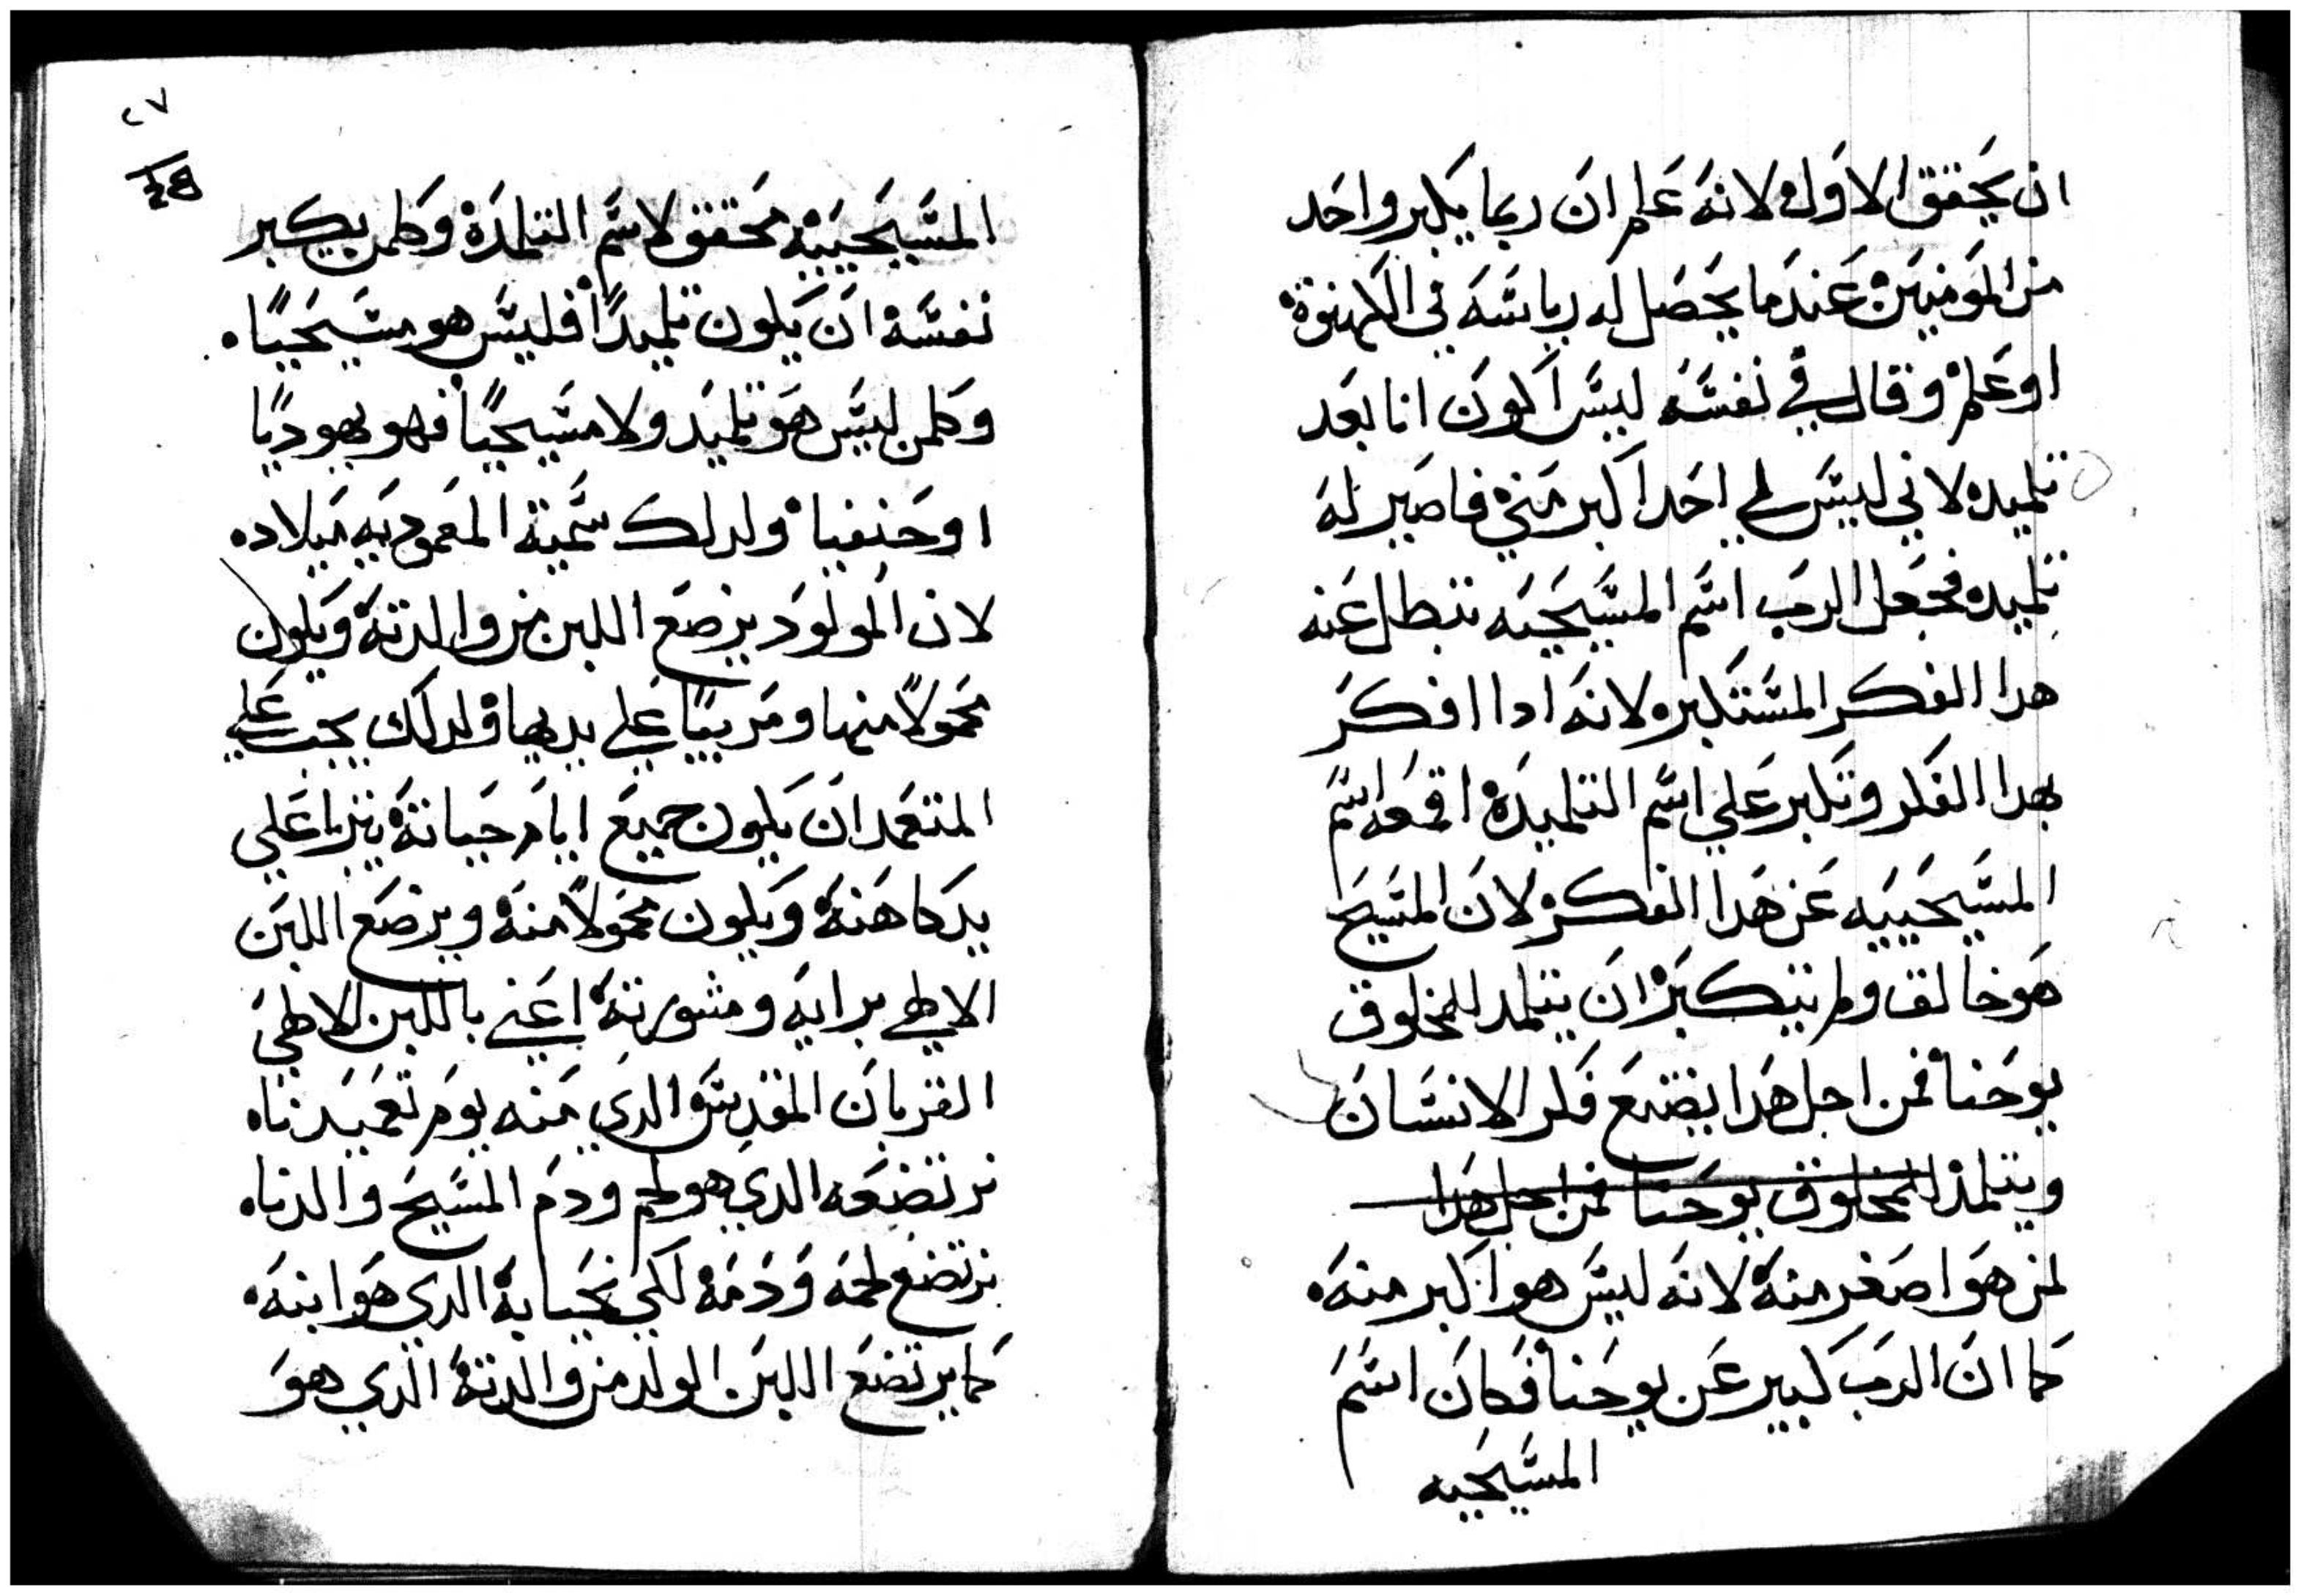 ان يحقق الاول لانه علم ان ربما يكبر واحد
من المومنين عندما يحصل له رياسه في الكهنوة
او علم وقال في نفسه ليس اكون انا بعد
تلميده لاني ليس لي احد اكبر مني فاصير له
تلميده فجعل الرب اسم المسيحيه تبطل عنه
هدا الفكر المستكبر ولانه ادا افكر
بهدا الفكر وتكبر علي اسم التلميدة اقمعه اسم
المسيحييه عن هدا الفكر لان المسيح
هو خالق ولم تيكبر ان يتلمد للمخلوق
يوحنا فمن اجل هدا يتضع فكر الانسان
ويتلمد للمخلوق يوحنا فمن اجل هدا
لمن هو اصغر منه لانه ليس هو اكبر منه
كما ان الرب كبير عن يوحنا فكان اسم
المسيحيه
٢٧
المسيحييه محقق لاسم التلمدة وكلمن يكبر
نفسه ان يكون تلميدًا فليس هو مسيحيًا
وكلمن ليس هو تلميد ولا مسيحيًا فهو يهوديًا
او حنفيا ولدلك سمية المعموديه ميلاده
لان المولود يرضع اللبن من والدته ويكون
محمولًا منها ومربيًا علي يديها ولدلك يجب علي
المتعمد ان يكون جميع ايام حياته يتربا علي
يد كاهنه ويكون محمولًا منه ويرضع اللبن
الالهي برايه ومشورته اعني باللبن الالهي
القربان المقدس الدي منه يوم تعميدناه
نرتضعه الدي هو لحم ودم المسيح والدناه
نرتضع لحمه ودمه لكي نحيا به الدي هو ابنه
كما يرتضع اللبن الولد من والدته الدي هو